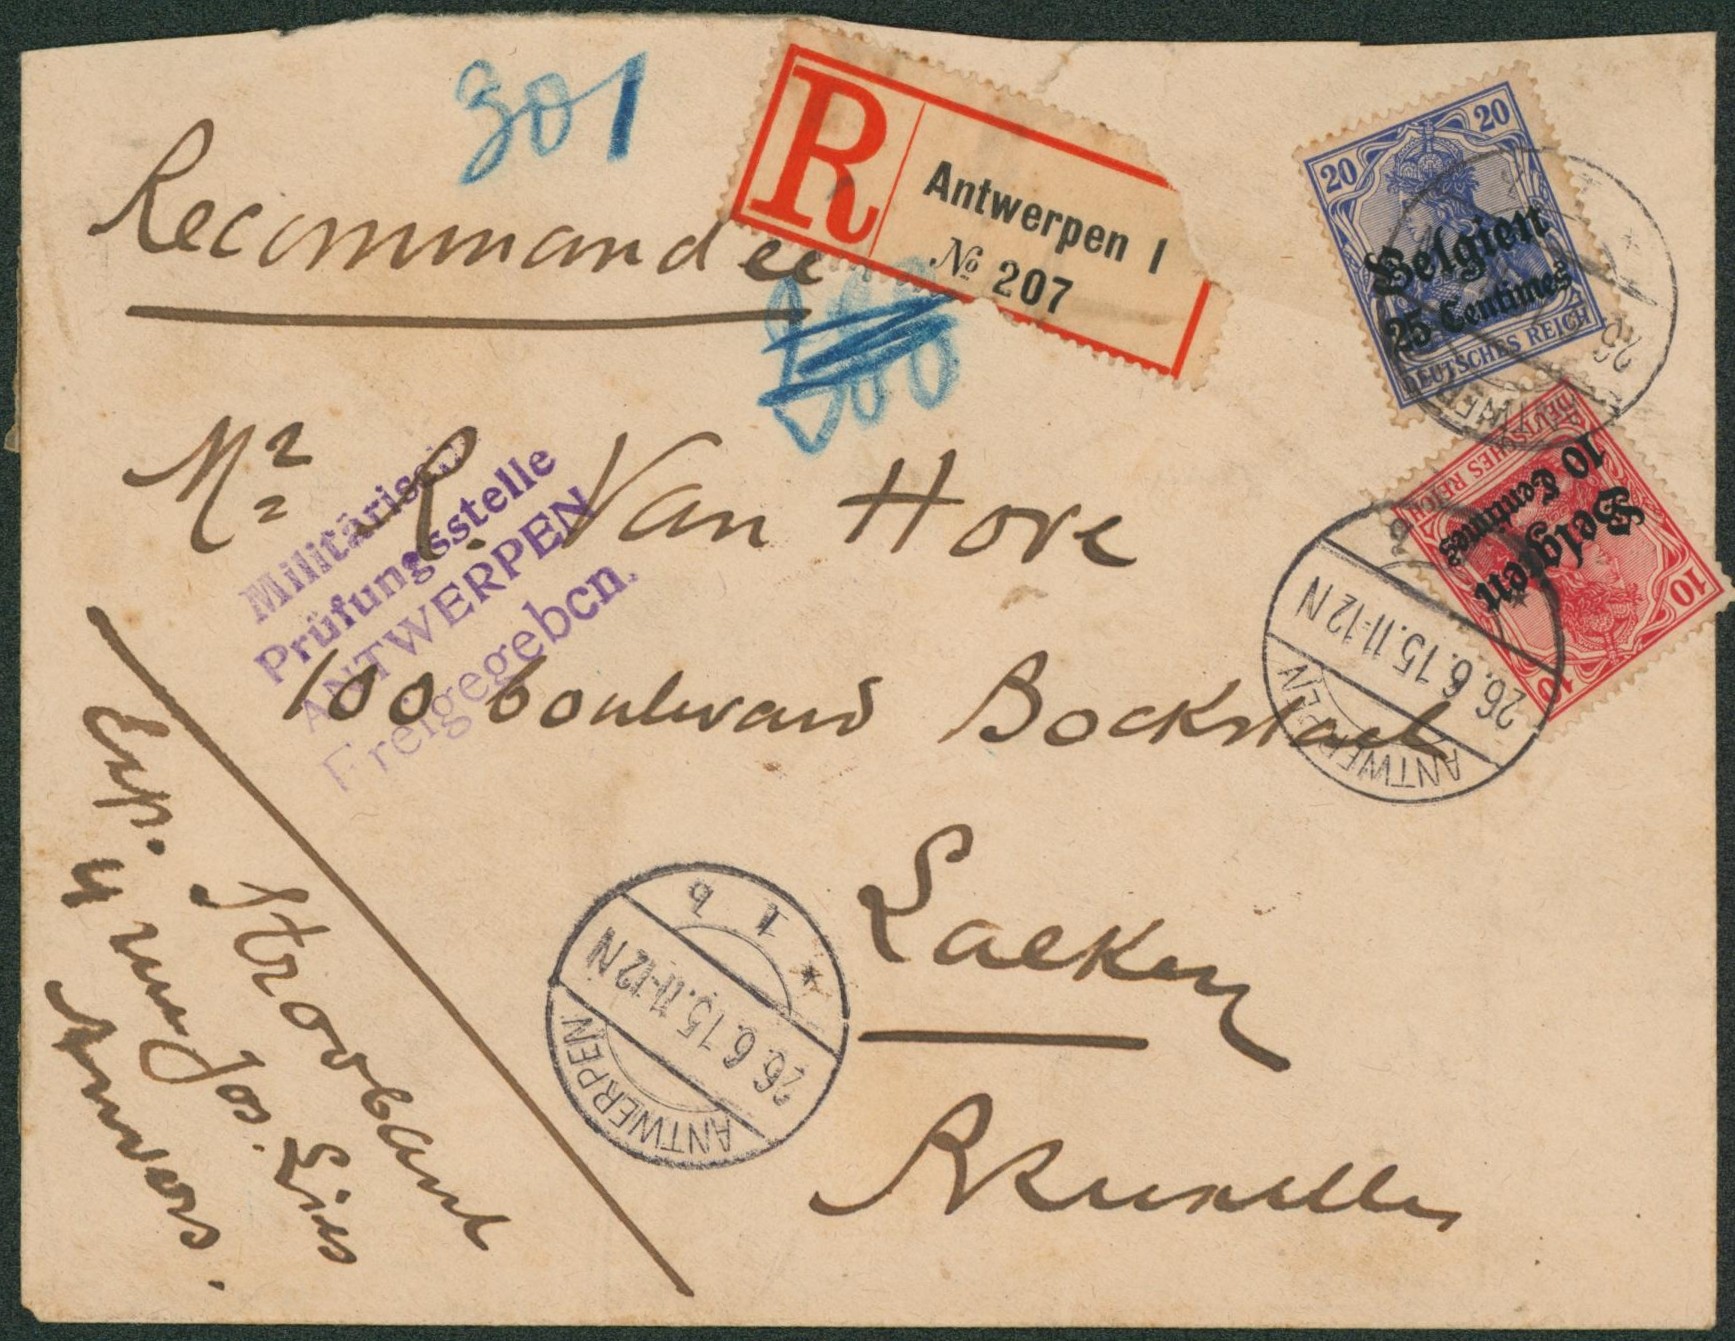 301
Recommandee
R Antwerpen 1
№ 207
20 20
Belgien
25 Centimes
DEUTSCHES REICH
DEUTSCHES REICH
10 Centimes
Belgien
10 10
ANTWERPEN
26.6.15.11-12N
ANTWERPEN
Mr R. Van Hove
Militärische
Prüfungsstelle
ANTWERPEN
Freigegeben.
100 boulevard Bockstael
Laeken
Bruxelles
1 b
26.6.15.11-12N
ANTWERPEN
Exp. Stroobant
4 rue Jos. Lies
Anvers.